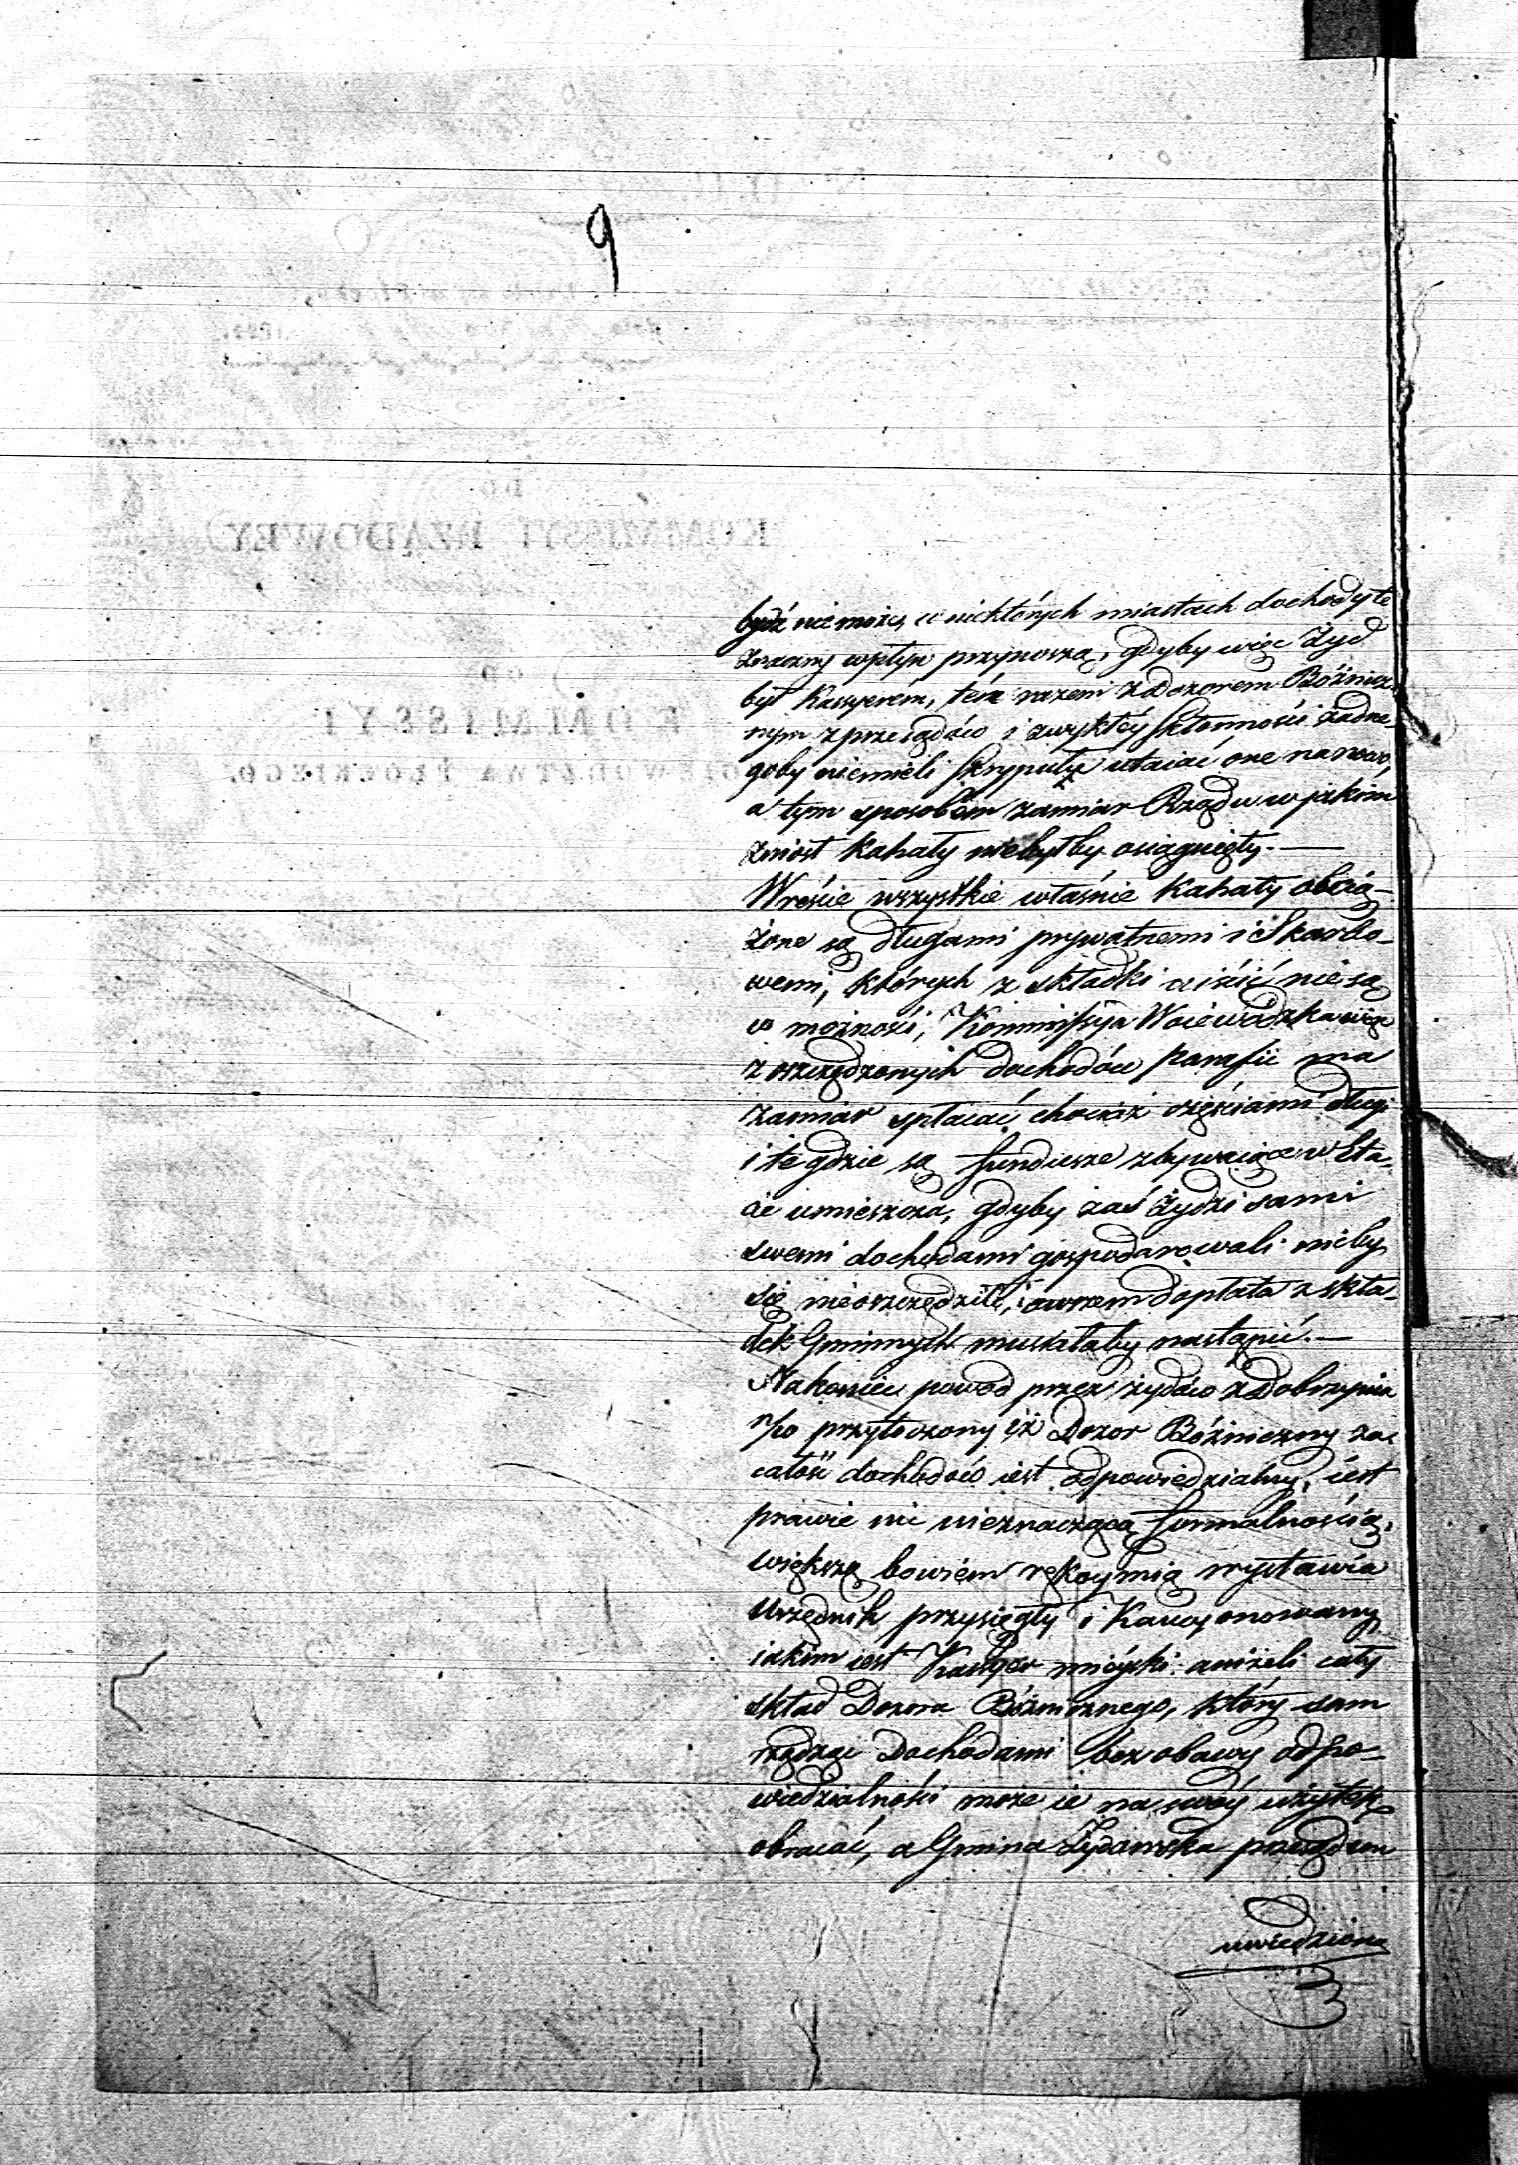 9
bydź nie może, w niektórych miastach dochody te
znaczny wpływ przynoszą, gdyby więc Żyd
był Kassyerem, tém razem z Dozorem Bóżnicz-
nym z przesądów i zwykłéy skłonności żadne-
goby niemieli skrypułu utaiać one na nowo,
a tym sposobem zamiar Rządu w jakim
zniósł Kahały niebyłby osiągnięty. —
Wreście wszystkie właśnie Kahały obcią-
żone są długami prywatnemi i Skarbo-
wemi, których z składki uiścić nie są
w możności, Kommissya Woiewódzka więc
z oszczędzonych dochodów parafii ma
zamiar spłacać chociaż częściami długi
i te gdzie są fundusze zbywaiące w Eta-
cie umieszcza, gdyby zaś Żydzi sami
swemi dochodami gospodarowali nicby
się nieoszczędziło, i owszem dopłata z skła-
dek Gminnych musiałaby nastąpić. —
Nakoniec powód przez żydów z Dobrzynia
n/D przytoczony iż Dozor Bóżniczny za
całość dochodów iest odpowiedzialny, iest
prawie nic nieznaczącą formalnością,
większą bowiem rękoymią wystawia
Urzędnik przysięgły i Kaucyonowany
iakim iest Kassyer mieyski aniżeli cały
skład Dozoru Bóżnicznego, który sam
rządząc Dochodami bez obawy odpo-
wiedzialności może ie na swóy użytek
obracać, a Gmina Żydowska przesądem
uwiedziona